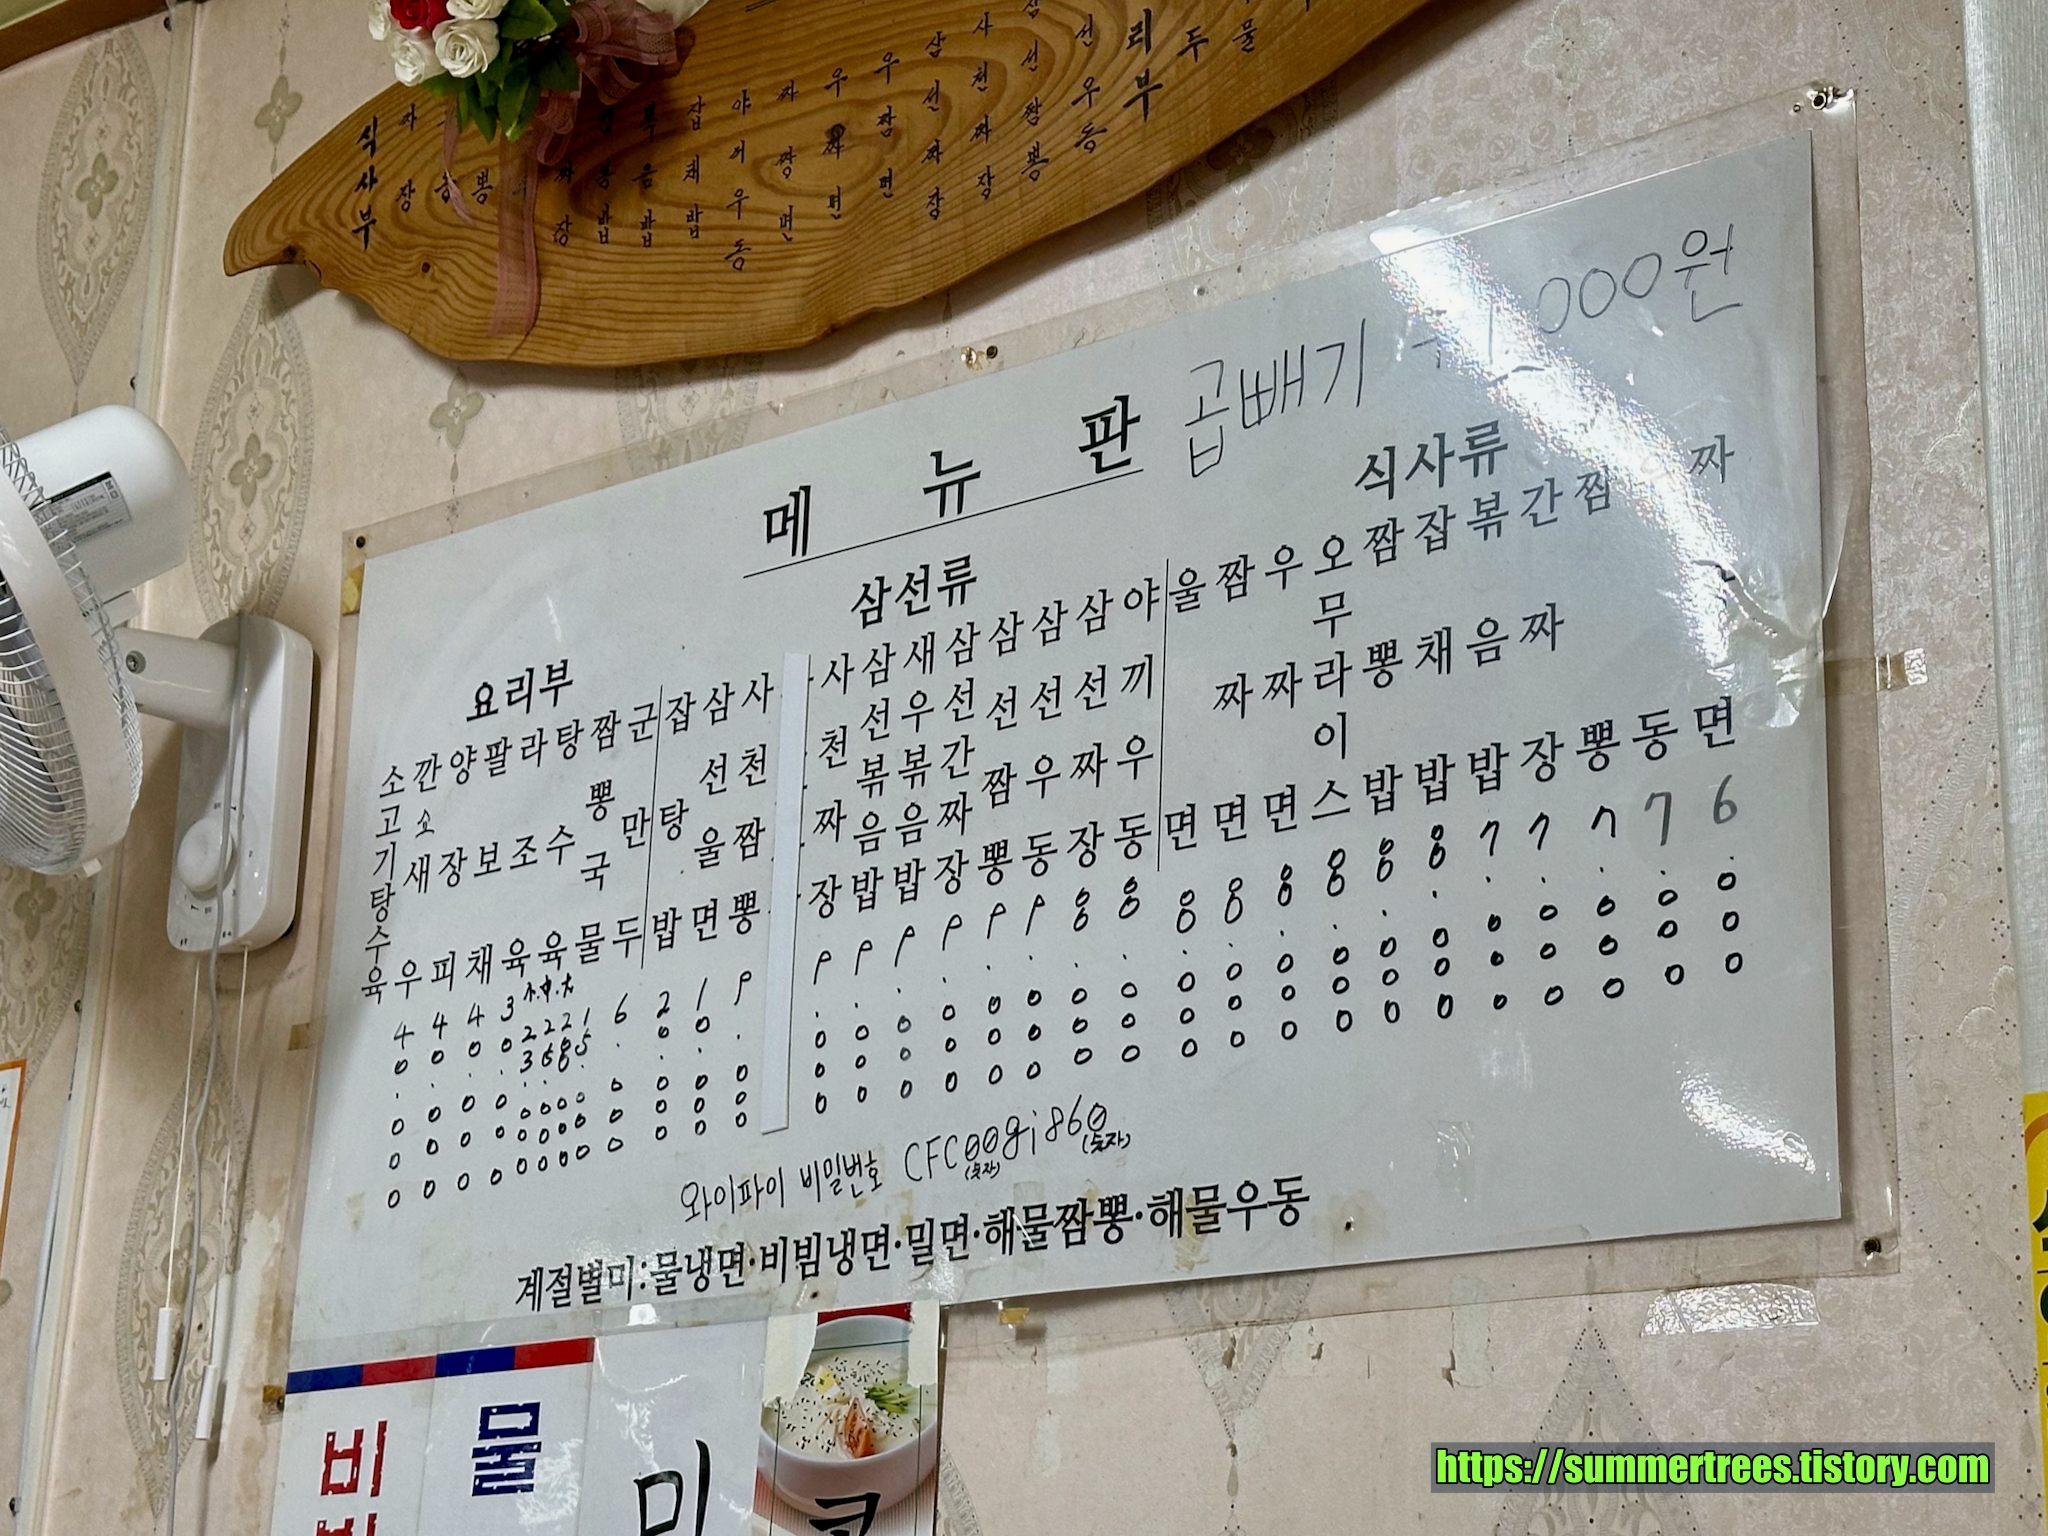 식사부
잡채밥
우짜면
우짬면
삼선짜장
사천짜장
삼선짬뽕
선우동
리부
메뉴판
곱빼기 000원
식사류
면 6.000
동 7.000
짬뽕 7.000
간짜장 7.000
볶음밥 7.000
잡채밥 8.000
짬뽕밥 8.000
오무라이스 8.000
우짜면 8.000
짬짜면 8.000
울면 8.000
삼선류
야끼우동 8.000
삼선짜장 8.000
삼선우동 9.000
삼선짬뽕 9.000
삼선간짜장 9.000
새우볶음밥 9.000
삼선볶음밥 9.000
사천짜장 9.000
사천짬뽕 9.000
삼선울면 10.000
잡탕밥 20.000
요리부
군만두 6.000
짬뽕국물 15.000
탕수육 小.中.大 23.000 26.000 28.000
라조육 30.000
팔보채 40.000
양장피 40.000
깐소새우 40.000
소고기탕수육
와이파이 비밀번호 CFC00gi860
(숫자) (숫자)
계절별미:물냉면·비빔냉면·밀면·해물짬뽕·해물우동
비
물
https://summertrees.tistory.com